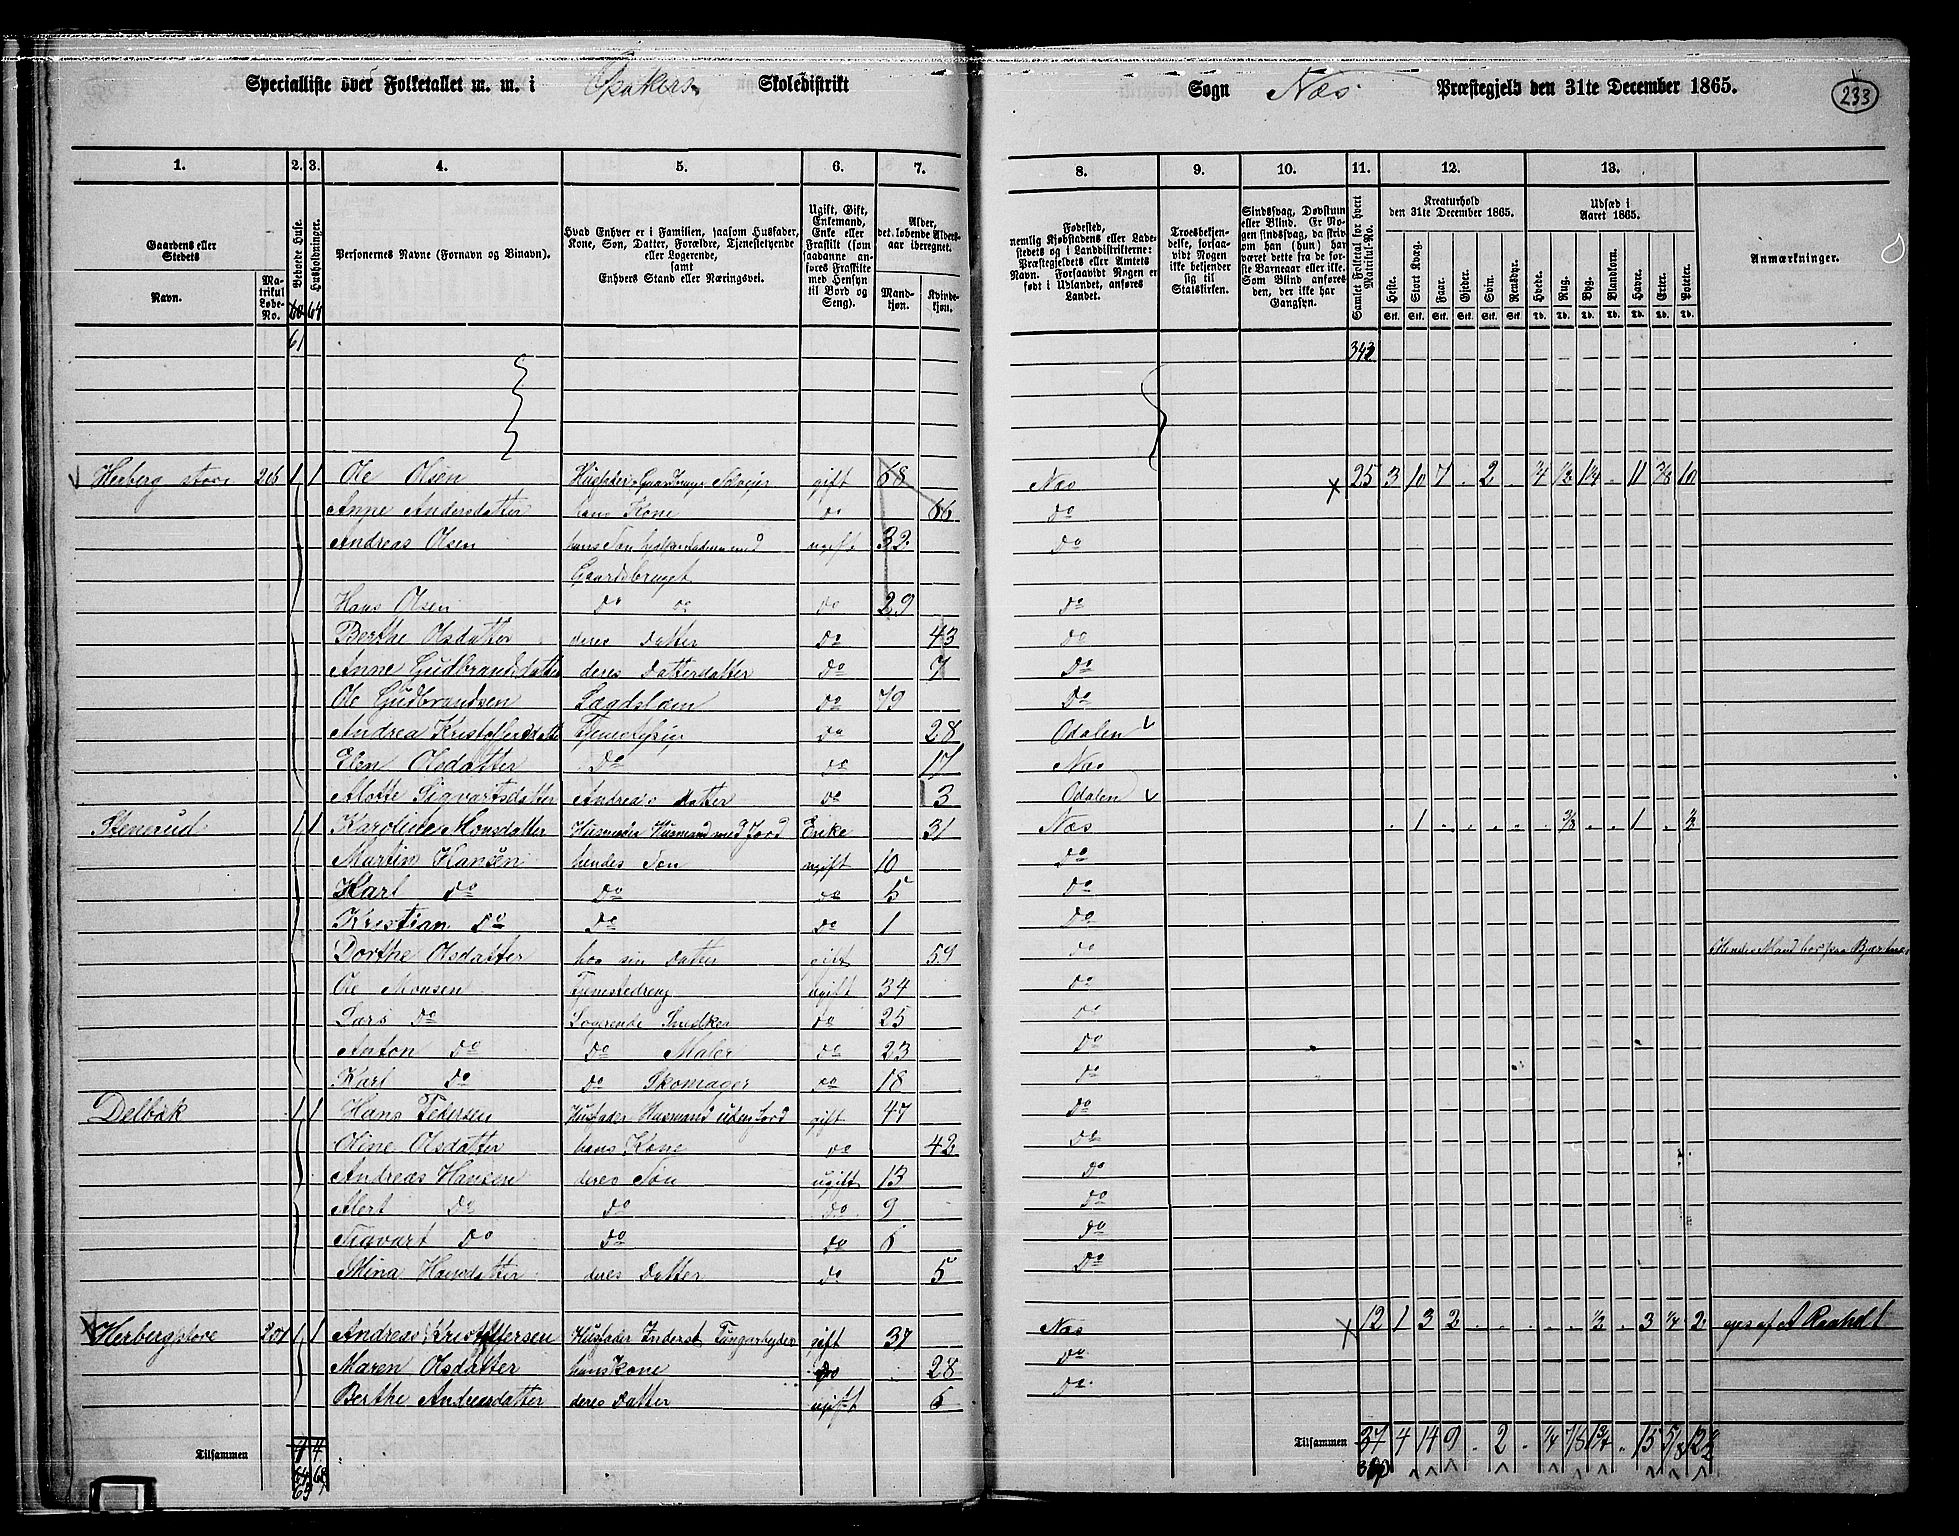 Specialliste over Folketallet m. m. i Opakers Skoledistrikt
Sogn Næs Præstegjeld den 31te December 1865.
233
1. 2. 3. 4. 5. 6. 7.
8. 9. 10. 11. 12. 13.
Gaardens eller Stedets
Navn.
Matrikul Løbe-No.
Beboede Huse.
Husholdninger.
Personernes Navne (Fornavn og Binavn).
Hvad Enhver er i Familien, saasom Husfader, Kone, Søn, Datter, Forældre, Tjenestetyende eller Logerende, samt Enhvers Stand eller Næringsvei.
Ugift, Gift, Enkemand, Enke eller Fraskilt (som saadanne anføres Fraskilte med Hensyn til Bord og Seng).
Alder, det løbende Aldersaar iberegnet.
Mandkjøn.
Kvindekjøn.
Fødested, nemlig Kjøbstadens eller Ladestedets og i Landdistrikterne: Præstegjeldets eller Amtets Navn. Forsaavidt Nogen er født i Udlandet, anføres Landet.
Troesbekjendelse, forsaavidt Nogen ikke bekjender sig til Statskirken.
Sindssvag, Døvstum eller Blind. Er Nogen sindssvag, da skrives om han (hun) har været dette fra de første Barneaar eller ikke. Som Blind anføres den, der ikke har Gangsyn.
Samlet Folketal for hvert Matrikul-No.
Kreaturhold den 31te December 1865.
Heste. Stort Kvæg. Faar. Gjeder. Svin. Rendyr.
Stk. Stk. Stk. Stk. Stk. Stk.
Udsæd i Aaret 1865.
Hvede. Rug. Byg. Blandkorn. Havre. Erter. Poteter.
Td. Td. Td. Td. Td. Td. Td.
Anmærkninger.
61 64
Herberg store 206 1 1 Ole Olsen Husfader Gaardbruger Selveier gift 68 Næs 25 3 10 7 . 2 . 1/4 1/2 1 1/4 . 11 10
Anne Andersdatter hans Kone do 66 do
Andreas Olsen hans Søn hjælper Faderen med ugift 32 do
Gaardsbruget
Hans Olsen do do do 29 do
Berthe Olsdatter deres Datter do 43 do
Anne Gudbrandsdatter deres Datterdatter do 7 do
Ole Gudbrandsen Lægdslem do 79 do
Andrea Kristoffersdatter Tjenestepige do 28 Odalen
Elen Olsdatter do do 17 Næs
Alotte Sigvartsdatter Andrea's Datter do 3 Odalen
Stenerud 1 1 Karoline Monsdatter Husmoder Husmand med Jord Enke 31 Næs . 1 . . . . . . . 1 . 2
Martin Hansen hendes Søn ugift 10 do
Karl do do do 5 do
Kristian do do do 1 do
Dorthe Olsdatter hos sin Datter gift 59 do Hendes Mand bor paa
Ole Monsen Tjenestedreng ugift 34 do
Lars do Logerende Snedker do 25 do
Anton do do Maler do 23 do
Karl do do Skomager do 18 do
Delbæk 1 1 Hans Pedersen Husfader Husmand uden Jord gift 47 do
Oline Olsdatter hans Kone do 42 do
Andreas Hansen deres Søn ugift 13 do
Alert do do do 9 do
Sigvart do do do do
Mina Hansdatter deres Datter do 5 do
Herberg store 207 1 1 Andreas Kristoffersen Husfader Inderst gift 37 Næs 12 1 3 2 . . . . 1/2 . 3 1/4 2 eies af A Raaholt
Maren Olsdatter hans Kone do 28 do
Berthe Andreasdatter deres Datter ugift 6 do
Tilsammen 4 4
Tilsammen 37 4 14 9 . 2 . 1/4 7/8 1 3/4 . 15